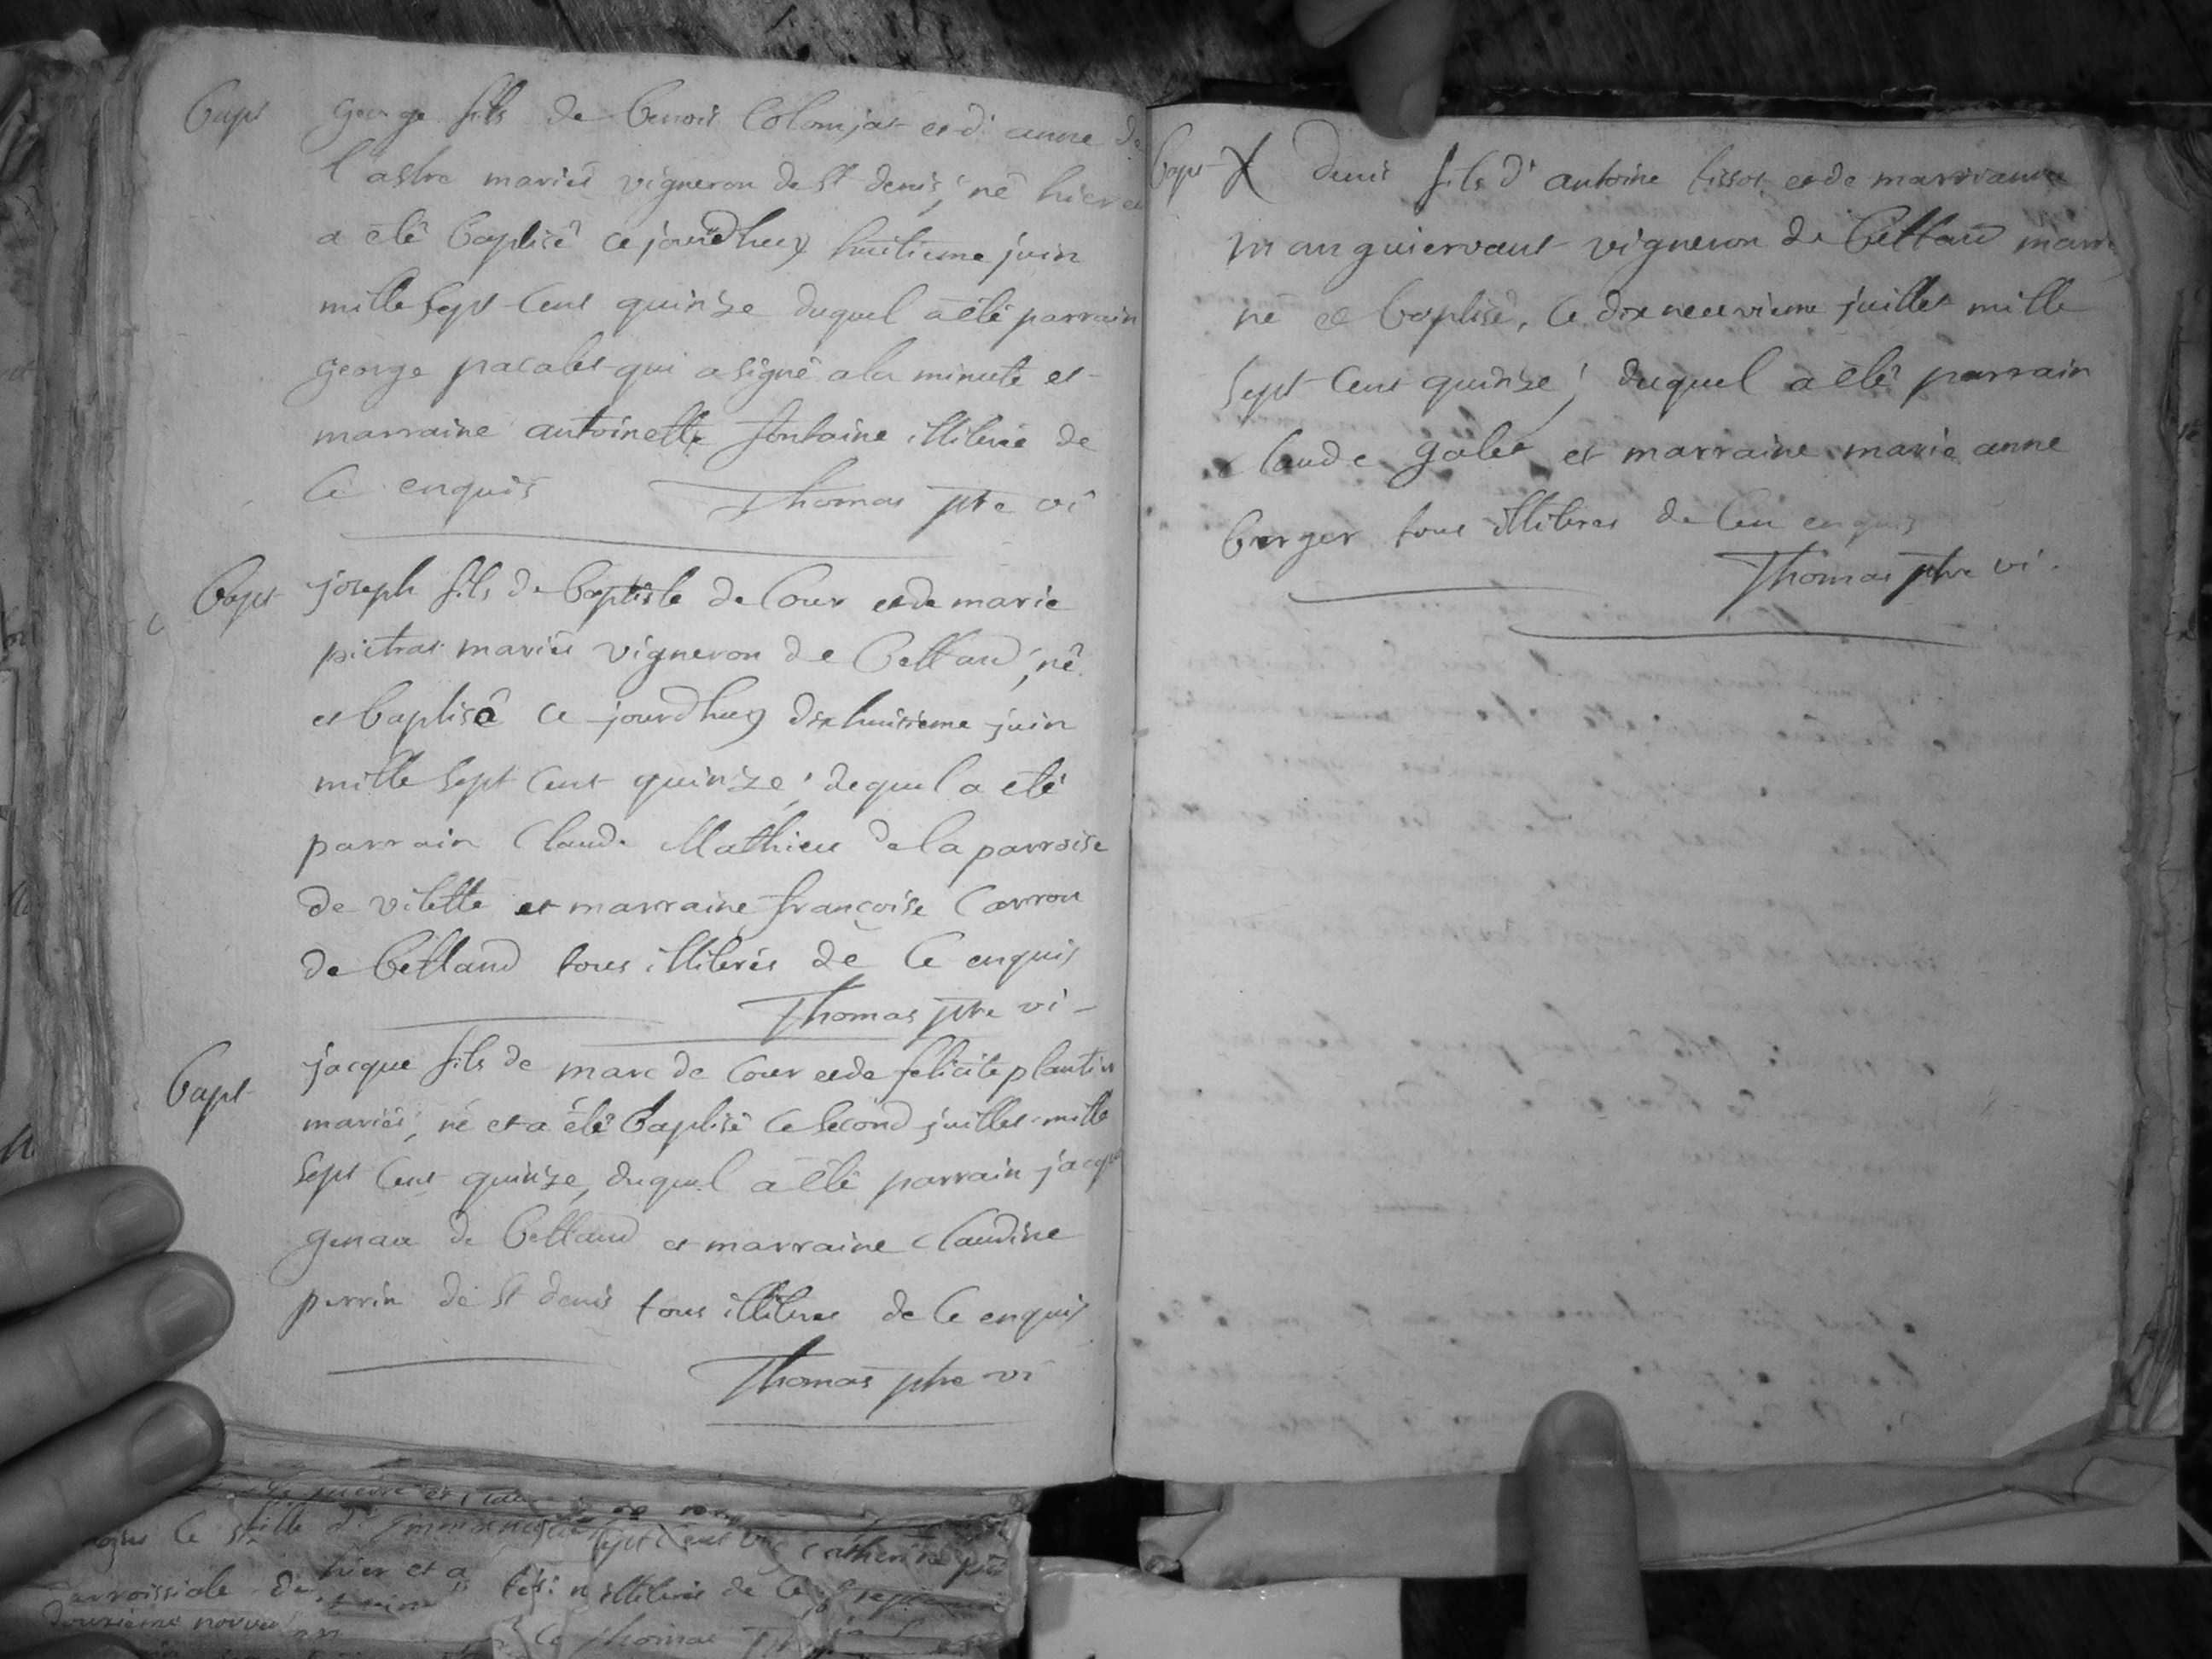 Bapt george fils de benoit Colomjat et d' anne de
l'astre mariés vigneron de st denis, né hier et
a été baptisé ce jourdhuy huitieme juin
mille sept cent quinze duquel a été parrain
george pacalet qui a signé a la minute et
marraine antoinette fontaine illiterée de
ce enquis Thomas ptre vi
Bapt joseph fils de baptiste de Cour et de marie
pietras mariés vigneron de bettand, né
et baptisé ce jourdhuy dixhuitieme juin
mille sept cent quinze, dequel a été
parrain Claude Mathieu de la parroise
de vilette et marraine françoise Carron
de bettand tous illiterés de ce enquis
Thomas ptre vi
Bapt jacque fils de marc de Cour et de felicite plantin
mariés, né et a été baptisé ce second juillet mille
sept cent quinze, duquel a été parrain jacque
genau de bettand et marraine Claudine
perrin de st denis tous illiteres de ce enquis
Thomas ptre vi
Bapt X denis fils d' antoine tissot et de
vigneron de bettand mariés
né et baptisé, ce dix neuvieme juillet mille
sept cent quinze, duquel a été parrain
claude galet et marraine marie anne
berger tous illiteres de ceu enquis
Thomas ptre vi.
hier et a
illiterés de ce
parroissiale de
Thomas